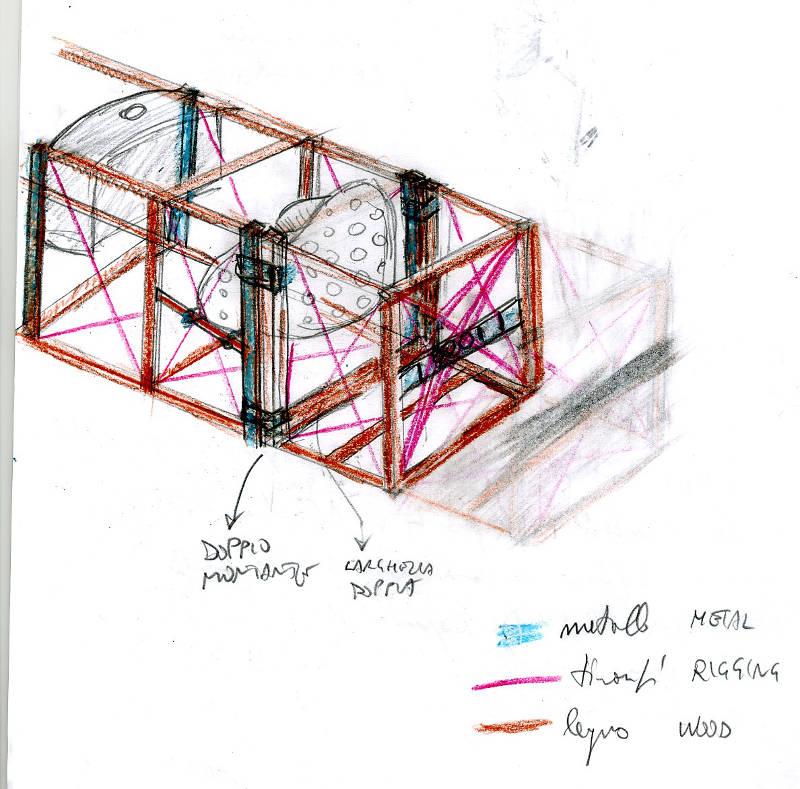 DOPPIO
MONTANTE
LARGHEZZA
DOPPIA
metallo METAL
tiranti RIGGING
legno WOOD